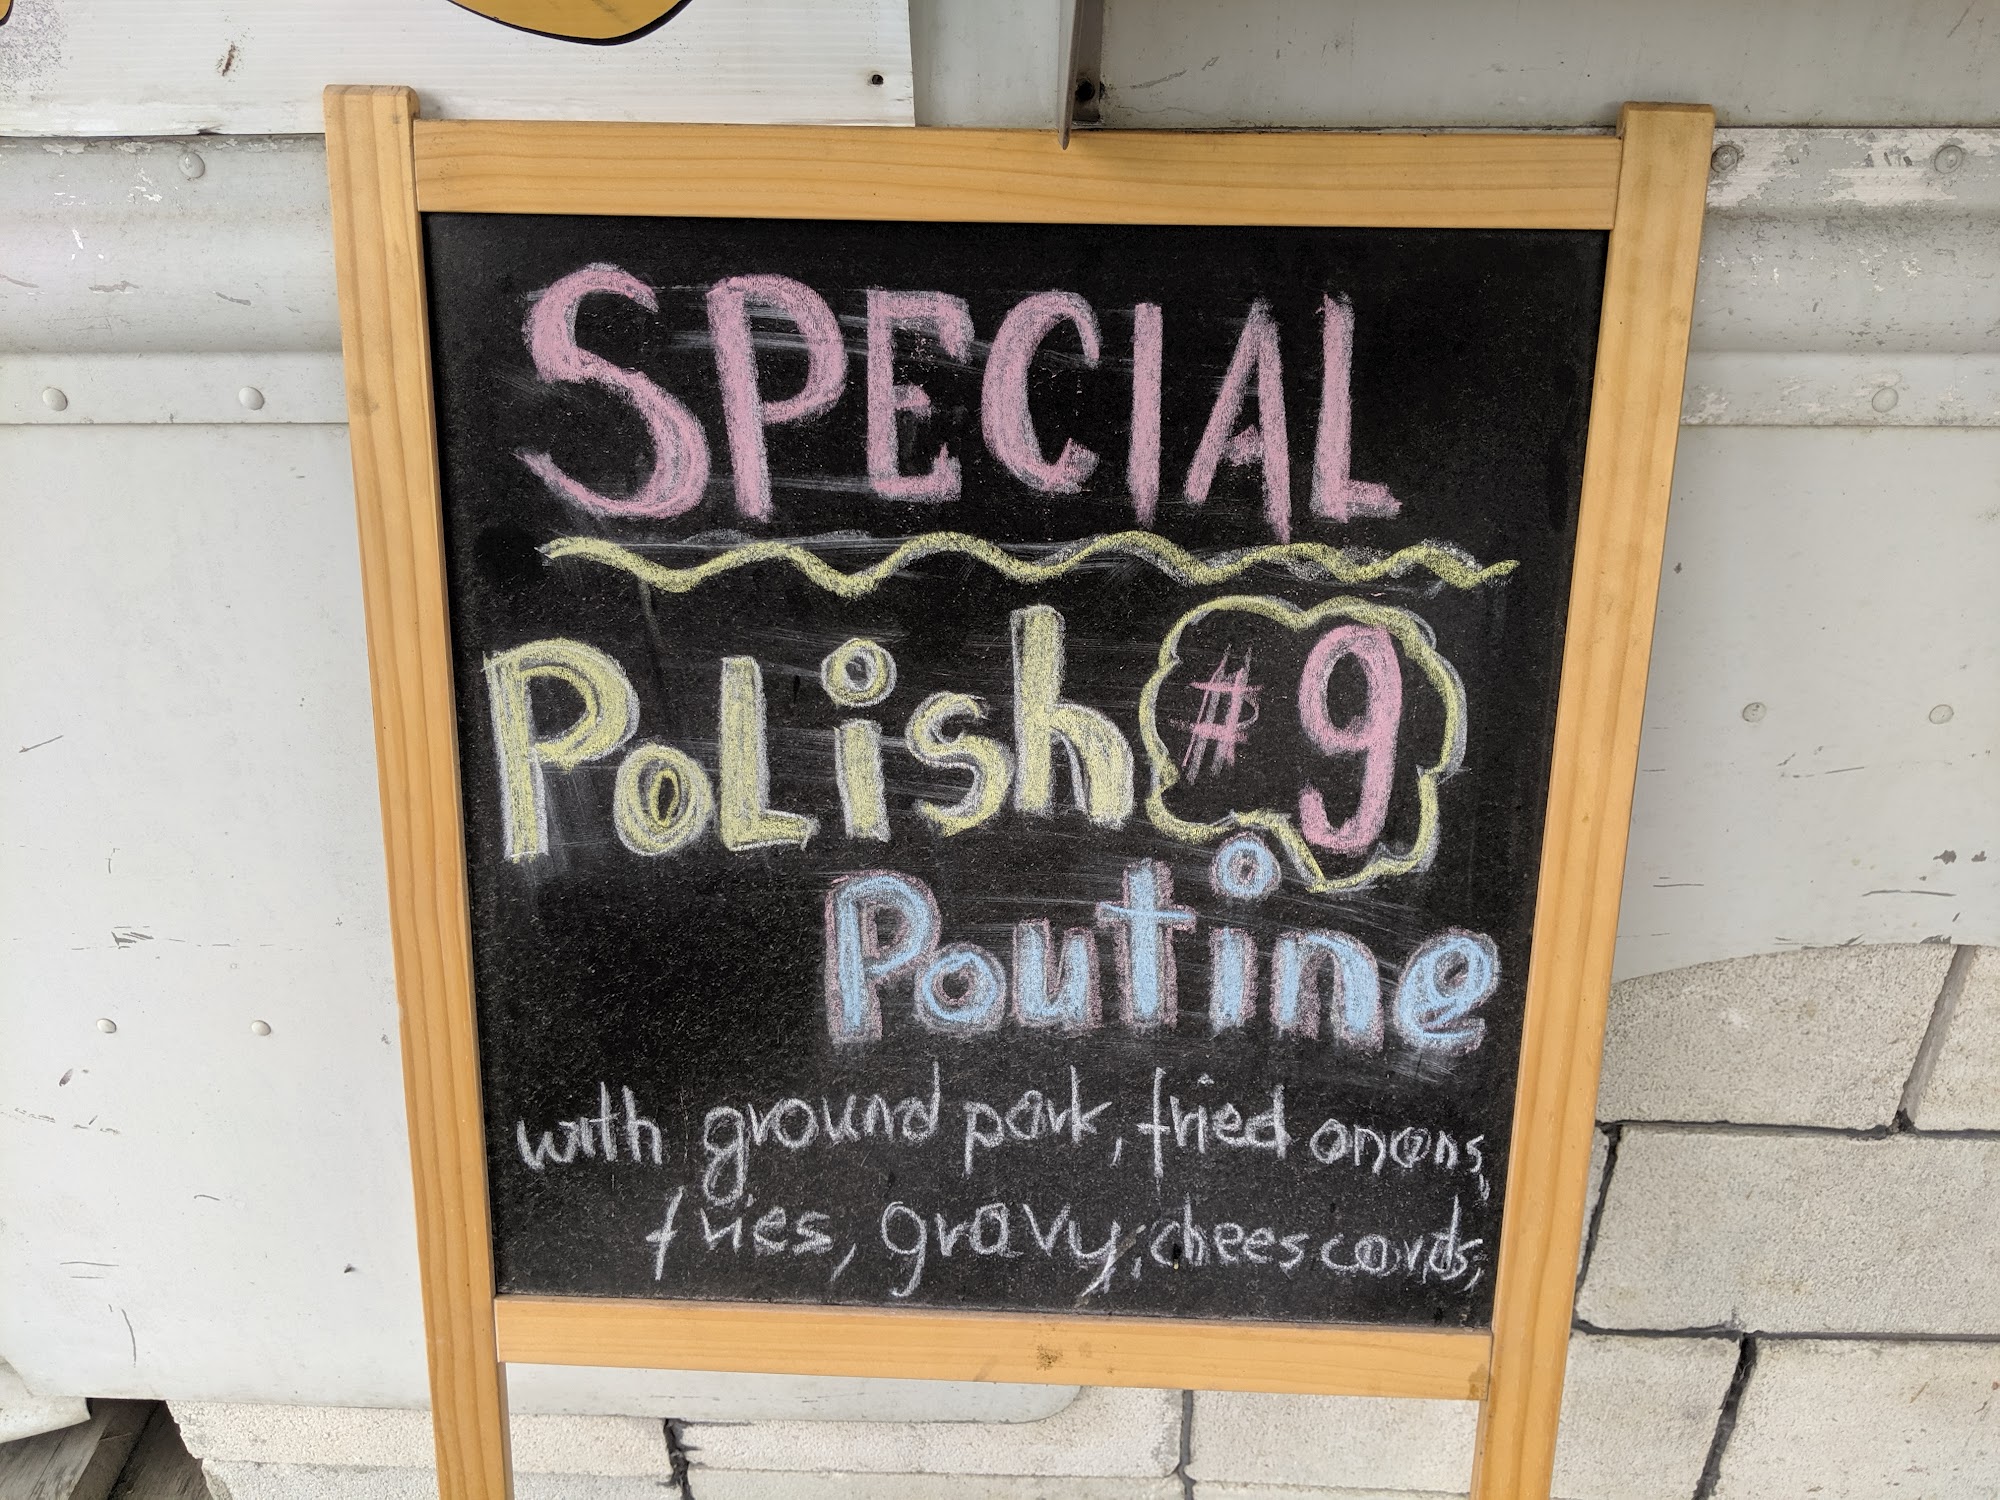 SPECIAL
PoLish #9
Poutine
with ground pork, fried onons,
fries, gravy, chees cords,